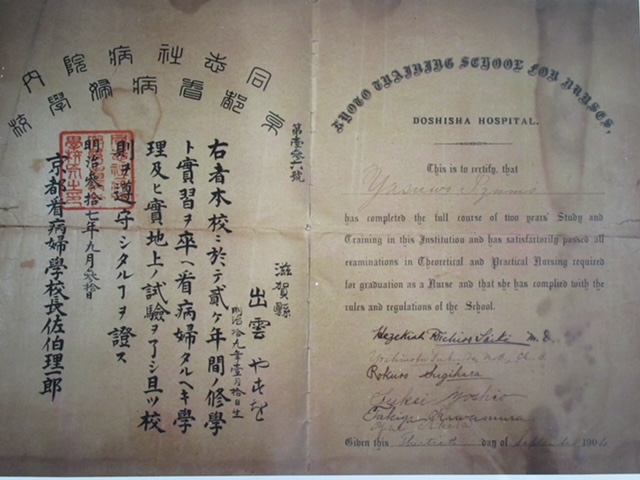 同志社病院内
京都看病婦學校
第壹參六號
滋賀縣
出雲やすを
明治拾九年壹月拾日生
右者本校ニ於テ貳ヶ年間ノ修學
ト實習ヲ卒ヘ看病婦タルヘキ學
理及ヒ實地上ノ試驗ヲ了シ且ツ校
則ヲ遵守シタルヿヲ證ス
明治參拾七年九月參拾日
京都看病婦學校長佐伯理一郎
KYOTO TRAINING SCHOOL FOR NURSES,
DOSHISHA HOSPITAL.
This is to certify, that
Yasuwo Izumo
has completed the full course of two years' Study and
Training in this Institution and has satisfactorily passed all
examinations in Theoretical and Practical Nursing required
for graduation as a Nurse and that she has complied with the
rules and regulations of the School.
Hezekiah Richiro Saiki M. D.
Rokuro Sugihara
Yoshio
Kawamura
Given this Thirtieth day of September 1904